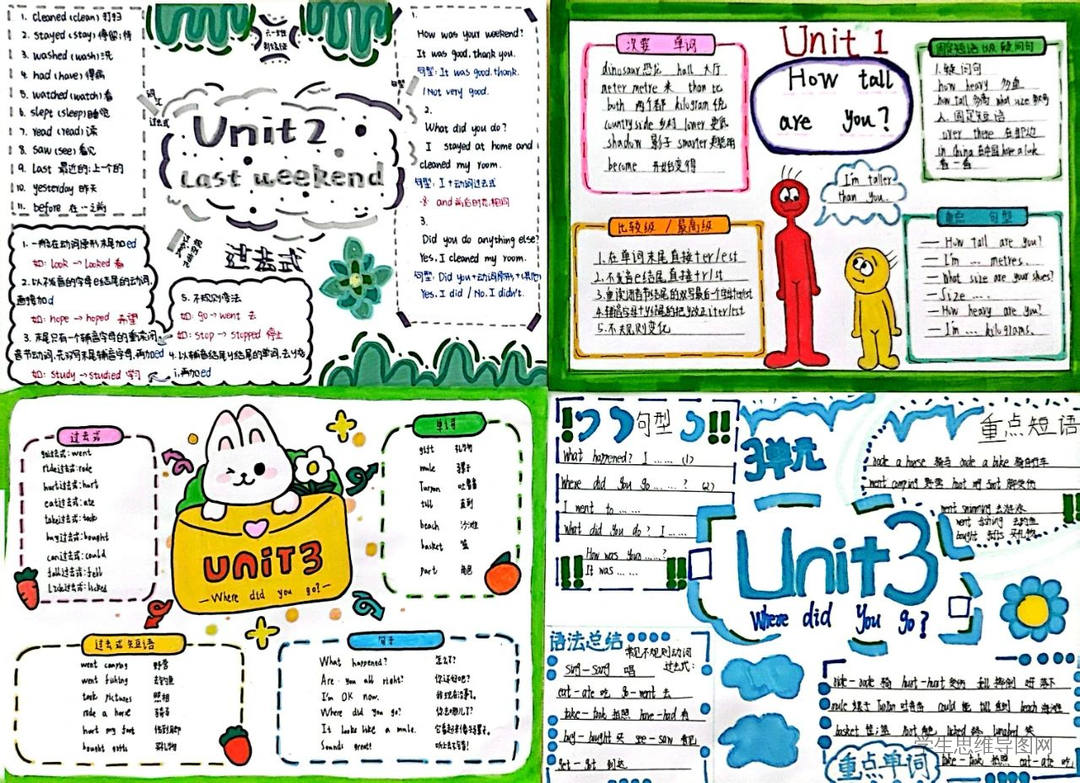 1. cleaned (clean) 打扫
2. stayed (stay) 停留;待
3. washed (wash) 洗
4. had (have) 得病
5. watched (watch) 看
6. slept (sleep) 睡觉
7. read (read) 读
8. saw (see) 看见
9. last 最近的;上一个的
10. yesterday 昨天
11. before 在…之前
Unit2
Last weekend
过去式
1.
How was your weekend?
It was good, thank you.
句型: It was good, thank.
/ Not very good.
2.
What did you do?
I stayed at home and
cleaned my room.
句型: I + 动词过去式
※ and 前后时态相同
3.
Did you do anything else?
Yes, I cleaned my room.
Yes, I did / No, I didn't.
1. 一般在动词原形末尾加ed
如: look → looked 看
2. 以不发音的字母e结尾的动词,
直接加d
如: hope → hoped 希望
3. 末尾只有一个辅音字母的重读闭
音节动词,先双写末尾辅音字母,再加ed
如: study → studied 学习
5. 不规则变法
如: go → went 去
如: stop → stopped 停止
4. 以辅音结尾y结尾的单词,去y变
i,再加ed
Unit 1
How tall
are you?
次要 单词
dinosaur 恐龙 hall 大厅
meter metre 米 than 比
both 两个都 kilogram 千克
countryside 乡村 lower 更低
shadow 影子 smarter 更聪明
become 开始变得
1. 疑问句
how heavy 多重
how tall 多高 what size 多大号
2. 固定短语
over there 在那边
in China 在中国 have a look
看一看
I'm taller
than you.
比较级 / 最高级
1. 在单词末尾直接+er/est
2. 不发音e结尾,直接+r/st
5. 不规则变化
重点 句型
— How tall are you?
— I'm … metres.
— What size are your shoes?
— Size ….
— How heavy are you?
— I'm … kilograms.
过去式
go过去式: went
ride过去式: rode
hurt过去式: hurt
eat过去式: ate
take过去式: took
buy过去式: bought
can过去式: could
fall过去式: fell
lick过去式: licked
UNiT3
— Where did you go? —
单词
gift 礼物
mule 骡子
Tarzan 人猿泰山
till 直到
beach 沙滩
basket 篮
part 角色
过去式 短语
went camping 野营
went fishing 去钓鱼
took pictures 照相
rode a horse 骑马
hurt my foot
bought gifts 买礼物
句子
What happened? 怎么了?
Are you all right? 你还好吧?
I'm OK now. 我现在没事了。
Where did you go? 你去哪儿了?
It looks like a mule.
Sounds great!
句型
What happened? I …… (1)
Where did you go ……? (2)
I went to ……
What did you do? I ……
How was your ……?
It was ……
3单元
Unit3
Where did you go?
重点短语
rode a horse 骑马 rode a bike 骑自行车
went camping 野营 hurt my foot
went swimming 去游泳
went fishing 去钓鱼
bought gifts 买礼物
语法总结
常见不规则动词
过去式:
sing-sang 唱
eat-ate 吃 go-went 去
take-took 拍照 have-had 有
buy-bought 买 see-saw 看见
get-got 到达
ride-rode 骑 hurt-hurt 受伤
basket 篮;筐 part 角色 licked 舔 laughed 笑
take-took 拍照 eat-ate 吃
重点单词
学生思维导图网